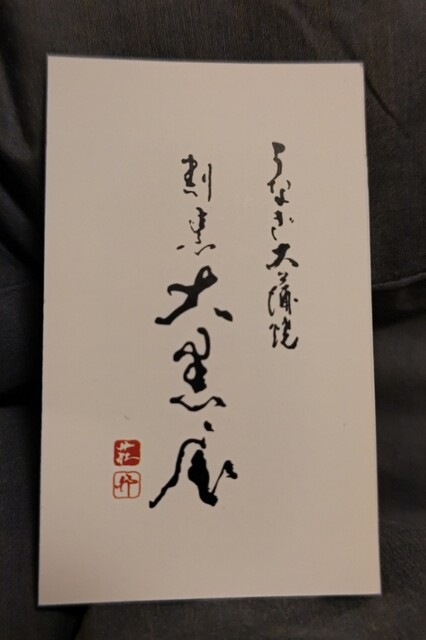 うなぎ大蒲焼
割烹 大黒屋